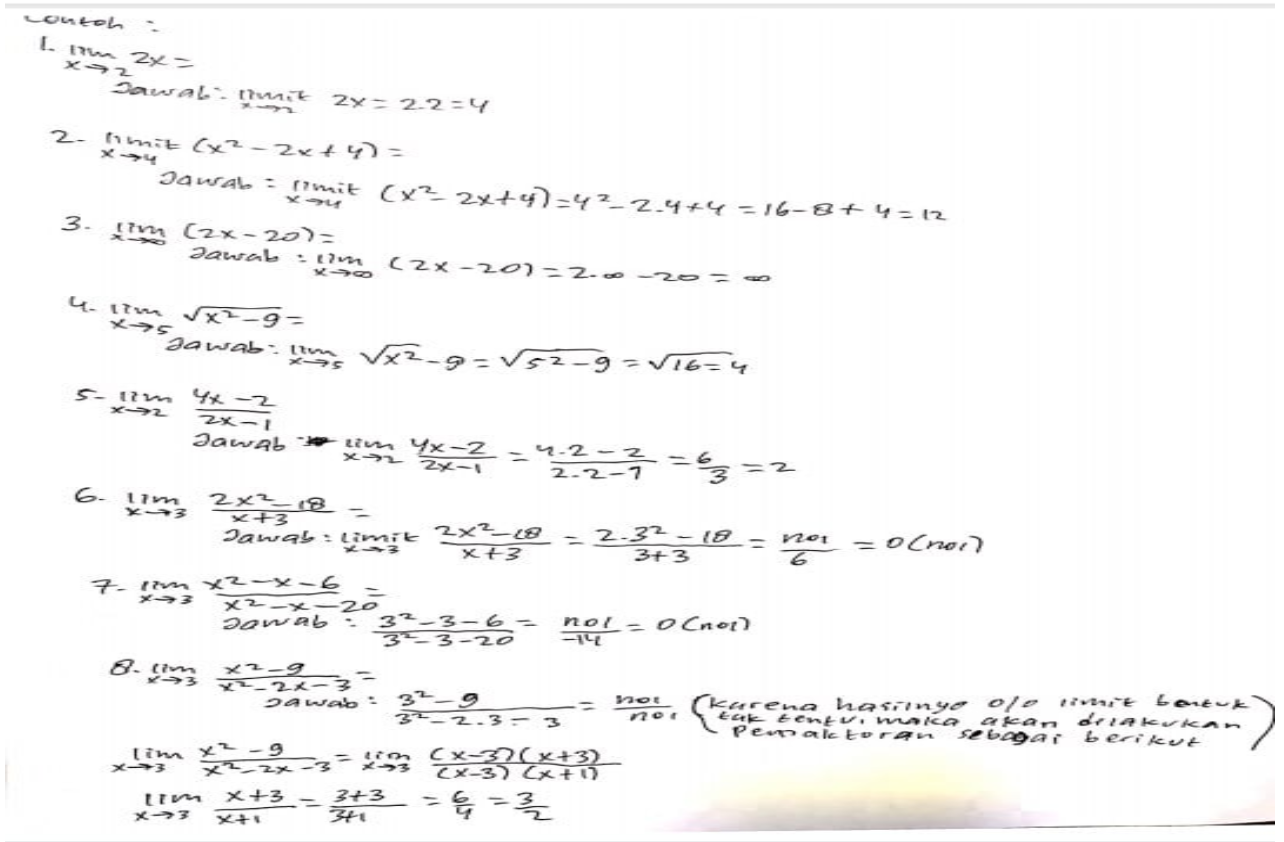 Contoh :
1. lim x→2 2x =
Jawab : limit x→2 2x = 2.2 = 4
2. limit x→4 (x² - 2x + 4) =
Jawab : limit x→4 (x² - 2x + 4) = 4² - 2.4 + 4 = 16 - 8 + 4 = 12
3. lim x→∞ (2x - 20) =
Jawab : lim x→∞ (2x - 20) = 2.∞ - 20 = ∞
4. lim x→5 √(x² - 9) =
Jawab : lim x→5 √x² - 9 = √(5² - 9) = √16 = 4
5. lim x→2 (4x - 2)/(2x - 1)
Jawab lim x→2 (4x - 2)/(2x - 1) = (4.2 - 2)/(2.2 - 1) = 6/3 = 2
6. lim x→3 (2x² - 18)/(x + 3) =
Jawab : limit x→3 (2x² - 18)/(x + 3) = (2.3² - 18)/(3 + 3) = nol/6 = 0 (nol)
7. lim x→3 (x² - x - 6)/(x² - x - 20) =
Jawab : (3² - 3 - 6)/(3² - 3 - 20) = nol/-14 = 0 (nol)
8. lim x→3 (x² - 9)/(x² - 2x - 3) =
Jawab : (3² - 9)/(3² - 2.3 - 3) = nol/nol (karena hasilnya 0/0 limit bentuk
tak tentu, maka akan dilakukan
Pemaktoran sebagai berikut)
lim x→3 (x² - 9)/(x² - 2x - 3) = lim x→3 (x-3)(x+3)/(x-3)(x+1)
lim x→3 (x + 3)/(x + 1) = (3 + 3)/(3 + 1) = 6/4 = 3/2